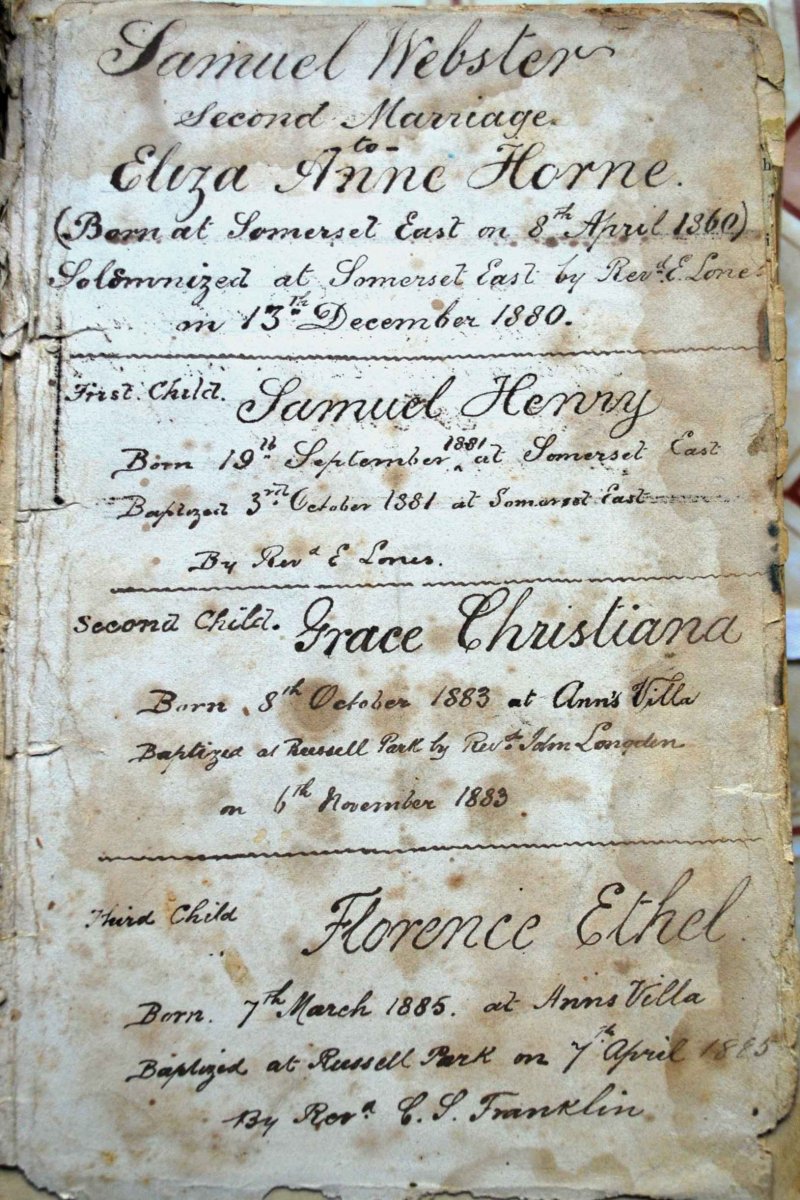 Samuel Webster
Second Marriage
to-
Eliza Anne Horne.
(Born at Somerset East on 8th April 1860)
Solemnized at Somerset East by Revd. E. Lones
on 13th December 1880.
First Child. Samuel Henry
Born 19th September 1881 at Somerset East
Baptized 3rd October 1881 at Somerset East
By Revd E Lones.
Second Child. Grace Christiana
Born 8th October 1883 at Ann's Villa
Baptized at Russell Park by Revd. John Longden
on 6th November 1883
Third Child Florence Ethel.
Born. 7th March 1885. at Anns Villa
Baptized at Russell Park on 7th April 1885
By Revd. C. S. Franklin